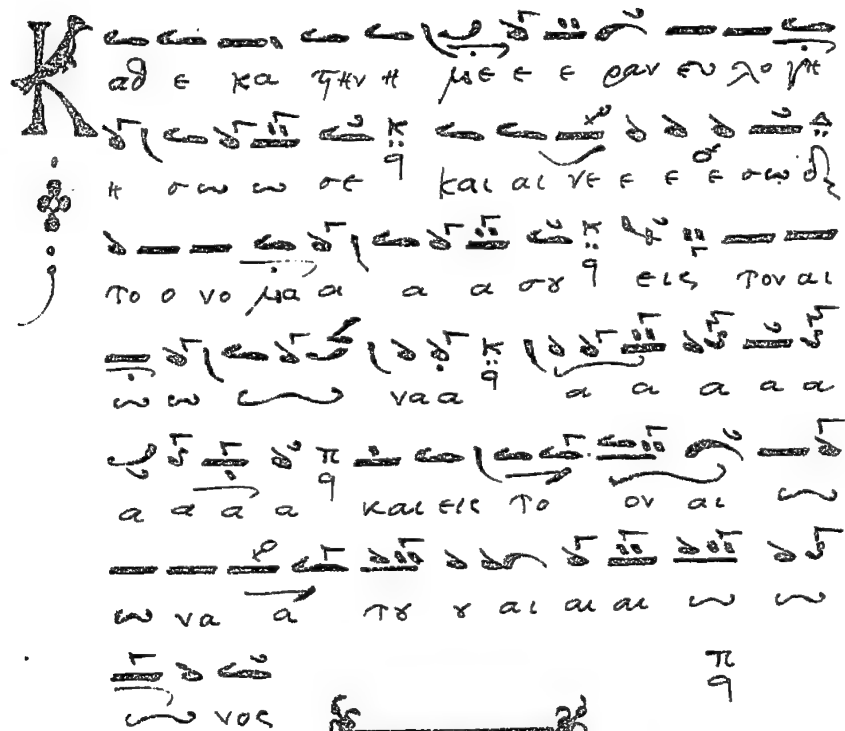 Κ αθ ε κα την η με ε ε ραν ευ λο γη
η σω ω σε και αι νε ε ε ε σω
το ο νο μα α α α σου εις τον αι
ω ω να α α α α α α
α α α α και εις το ον αι
ω να α του ου αι αι αι ω ω
νος